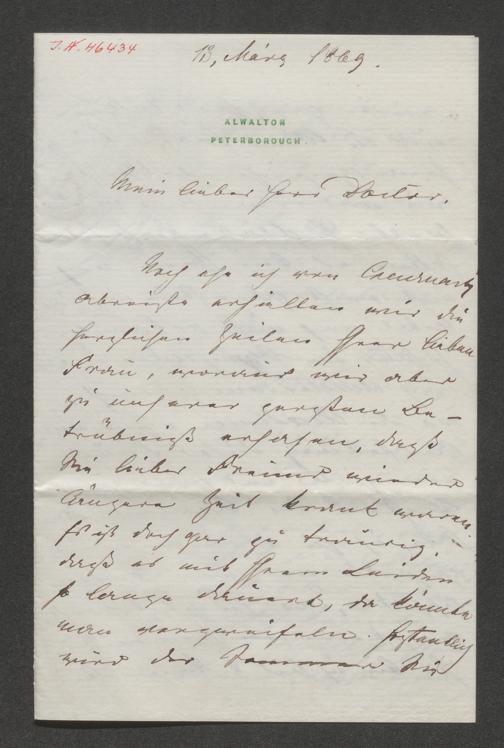 J.N. 46434
13, März 1869.
ALWALTON
PETERBOROUGH.
Mein lieber Herr Doctor,
Noch ehe ich von
abreiste erhielten wir die
herzlichen Zeilen Ihrer lieben
Frau, woraus wir aber
zu unserer grossen Be-
trübniß ersahen, daß
Sie lieber Freund wieder
längere Zeit krank waren.
Es ist doch gar zu traurig,
daß es mit Ihrem Leiden
so lange dauert, da könnte
man verzweifeln. Hoffentlich
wird der Sommer Sie